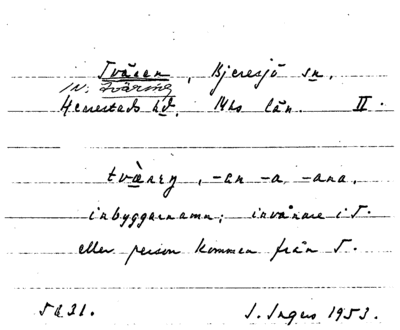 Tvären, Bjeresjö sn.
IN: Tväring
Herrestads hd. Mhs län. II.
tvä̀rey, -an -a, -ana,
inbyggarnamn; invånare i T.
eller person kommen från T.
5631. S. Ingers 1953.